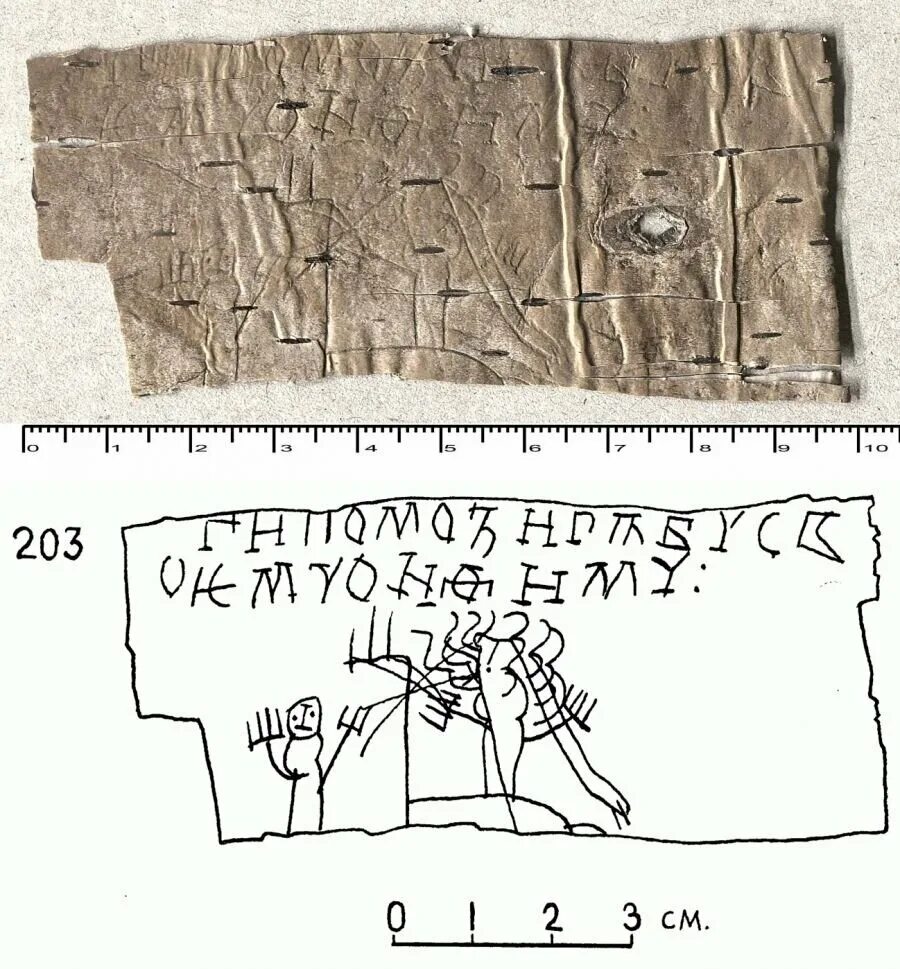 0 1 2 3 4 5 6 7 8 9 10
203
ГИПОМОꙀИРАБѴСВ
ОѤМѴОНѲИМѴ:
0 1 2 3 СМ.